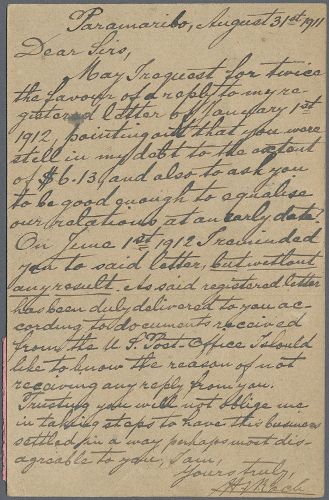 Paramaribo, August 31st 1911
Dear Sirs,
May I request for twice
the favour of a reply to my re-
gistered letter of January 1st
1912, pointing out that you were
still in my debt to the extent
of $6.13, and also to ask you
to be good enough to equalise
our relations at an early date.
On June 1st 1912 I reminded
you to said letter, but without
any result. As said registered letter
has been duly delivered to you ac-
cording to documents received
from the U.S. Post-Office I should
like to know the reason of not
receiving any reply from you.
Trusting you will not oblige me
in taking steps to have this business
settled in a way perhaps most dis-
agreeable to you, I am,
Yours truly,